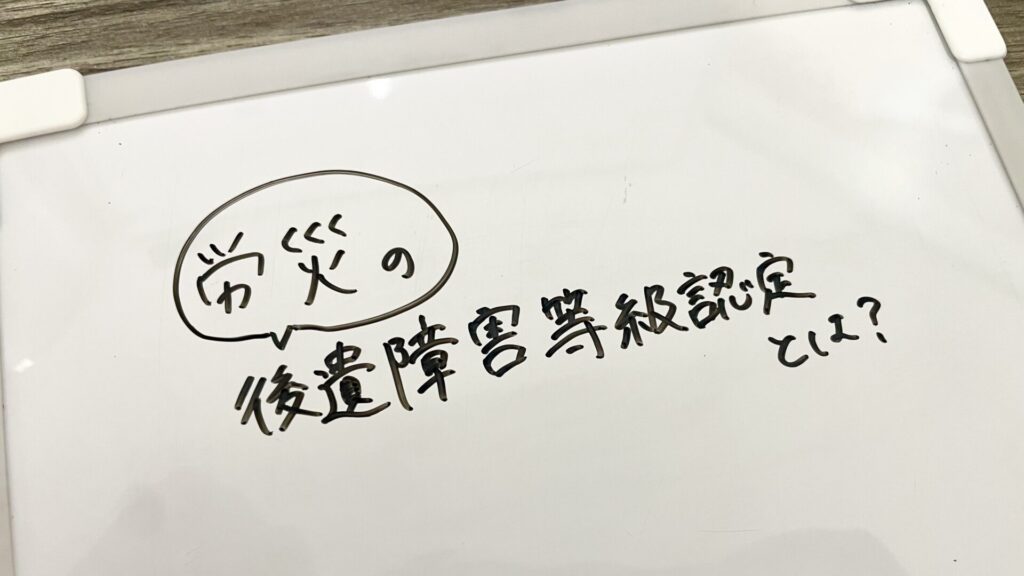 労災の
後遺障害等級認定
とは?